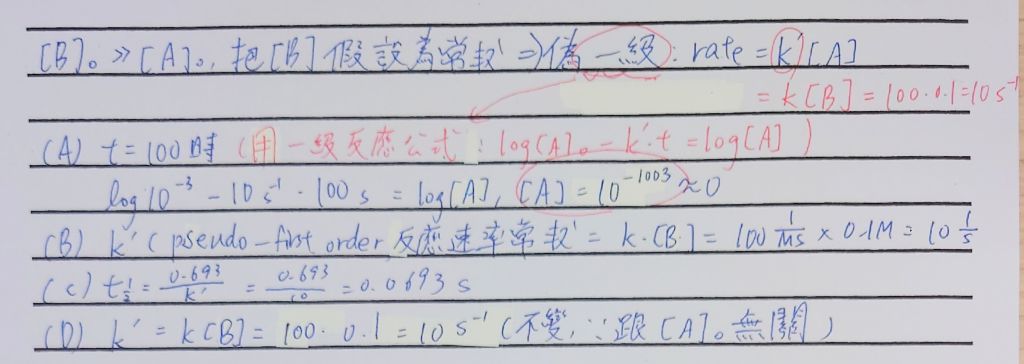 [B]₀ ≫ [A]₀, 把[B]假設為常數 ⇒ 偽一級: rate = k'[A]
= k[B] = 100·0.1 = 10 s⁻¹
(A) t=100時 (用一級反應公式: log[A]₀ - k'·t = log[A])
log 10⁻³ - 10 s⁻¹ · 100 s = log[A], [A] = 10⁻¹⁰⁰³ ≈ 0
(B) k' (pseudo-first order 反應速率常數 = k·[B] = 100 1/MS × 0.1M = 10 1/s
(c) t½ = 0.693/k' = 0.693/10 = 0.0693 s
(D) k' = k[B] = 100· 0.1 = 10 s⁻¹ (不變, ∵跟[A]₀無關)